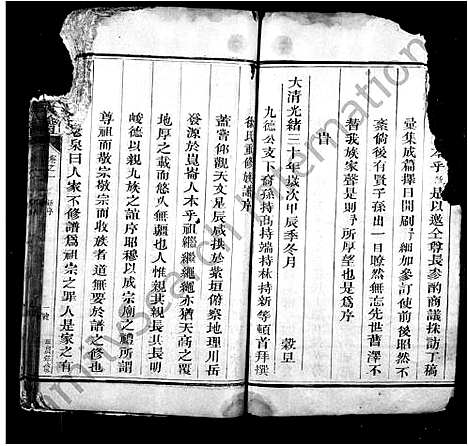 本乎是以邀仝尊長參酌商議採訪丁稿
彙集成篇擇日開刷予細加參訂使前後昭然不
紊倘後有賢子孫出一目瞭然無忘先世舊澤不
替我族家聲是則予所厚望也是爲序
旹
大清光緒三十年歲次甲辰季冬月 穀旦
九德公支下裔孫持高持端持林持新等頓首拜撰
徐氏重修族譜序
蓋嘗仰觀天文星辰咸拱於紫垣俯察地理川岳
發源於崑崙人本乎祖繼繼繩繩亦猶天高之覆
地厚之載而悠久無疆也人惟親其親長其長明
峻德以親九族之誼序昭穆以成宗廟之禮所謂
尊祖而敬宗敬宗而收族者道無要於譜之修也
老泉曰人家不修譜爲祖宗之罪人是家之有
卷之一 序